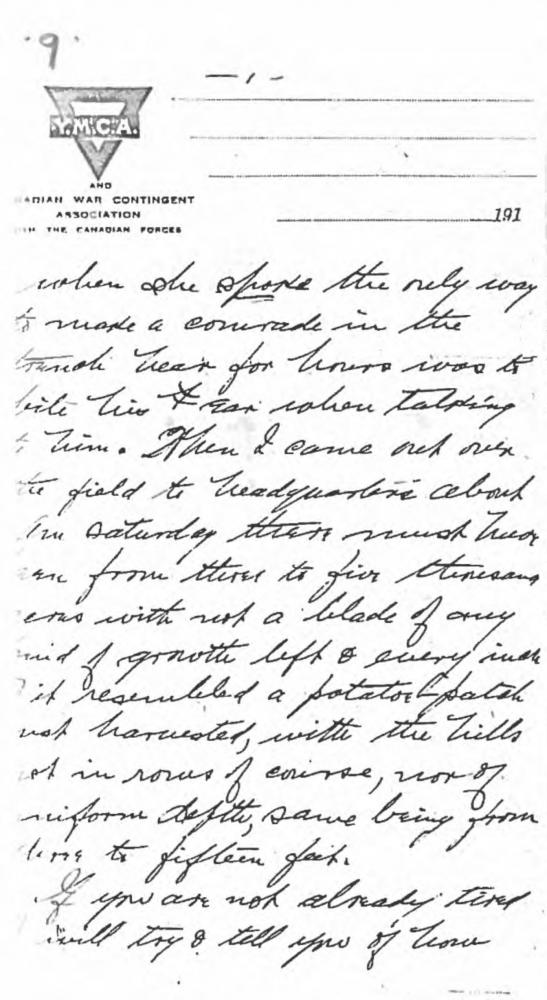 9
- 1 -
Y.M.C.A.
AND
ADIAN WAR CONTINGENT
ASSOCIATION
THE CANADIAN FORCES
191
when she spoke the only way
to make a comrade in the
trench hear for hours was to
bite his ear when talking
him. When I came out over
the field to headquarters about
on saturday there must have
en from three to five thousand
cres with not a blade of any
ind of growth left & every inch
it resembled a potatoe patch
ust harvested, with the hills
ot in rows of course, nor of
niform depth, same being from
three to fifteen feet.
If you are not already tired
will try & tell you of how